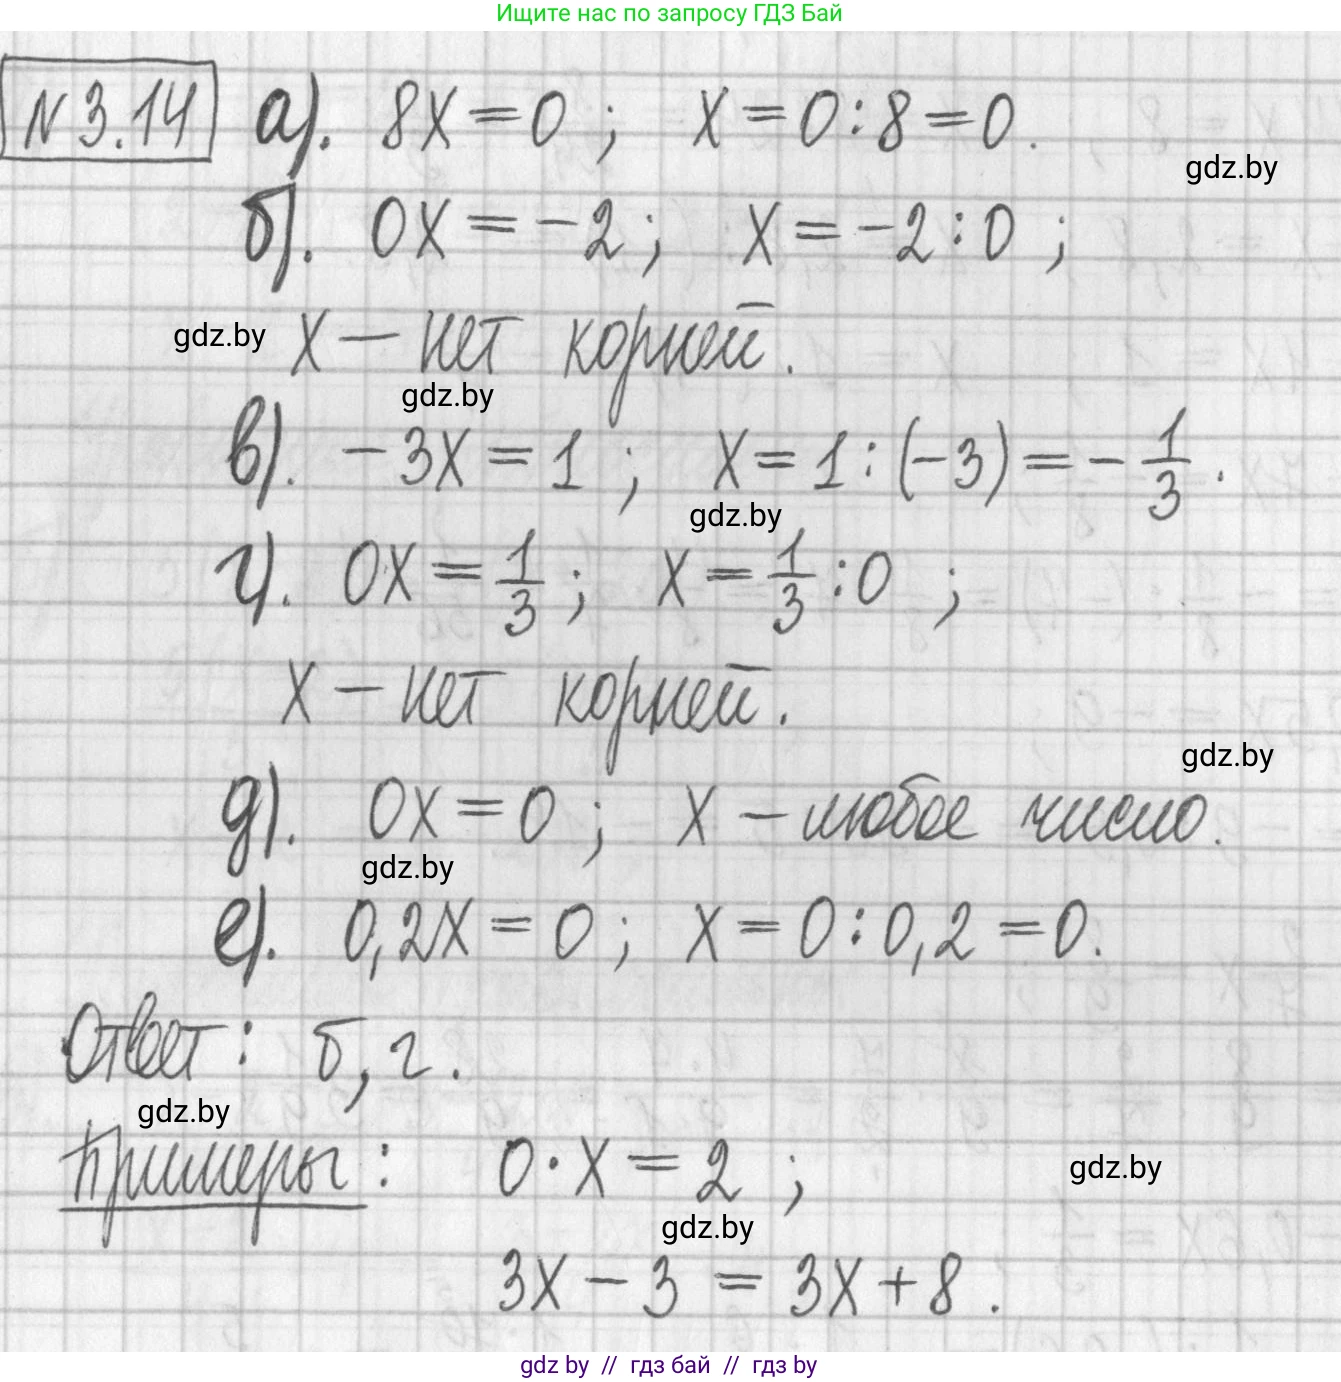 Ищите нас по запросу ГДЗ Бай
N 3.14 а). 8x = 0 ; x = 0 : 8 = 0 .
gdz.by
б). 0x = -2 ; x = -2 : 0 ;
gdz.by x — нет корней .
gdz.by
в). -3x = 1 ; x = 1 : (-3) = - 1/3 .
gdz.by
г). 0x = 1/3 ; x = 1/3 : 0 ;
x — нет корней .
gdz.by
д). 0x = 0 ; x — любое число .
gdz.by
е). 0,2x = 0 ; x = 0 : 0,2 = 0 .
Ответ : б, г .
gdz.by
Примеры : 0 · x = 2 ;
gdz.by
gdz.by
3x - 3 = 3x + 8 .
gdz by // гдз бай // гдз by